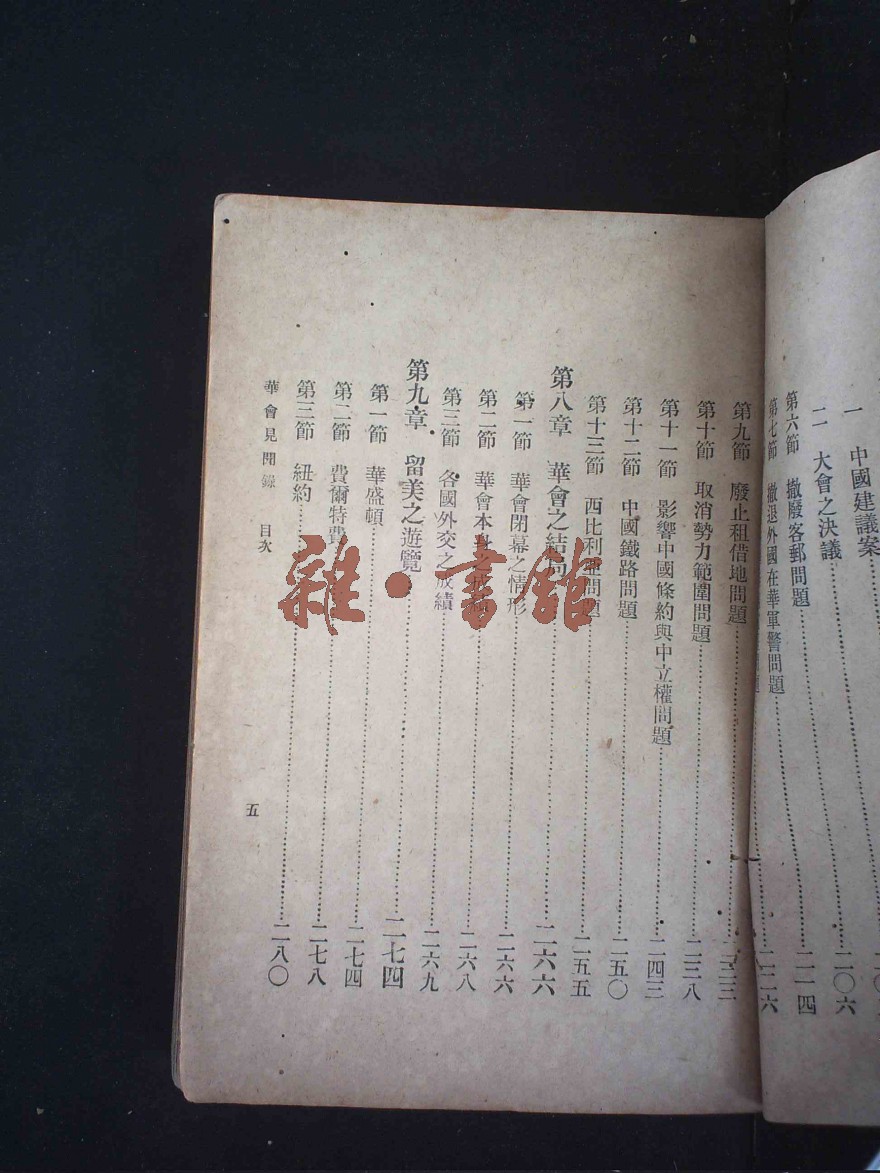 一　中國建議案
二　大會之決議……二〇六
第六節　撤廢客郵問題……二一四
第七節　撤退外國在華軍警問題……二二六
第九節　廢止租借地問題……二三三
第十節　取消勢力範圍問題……二三八
第十一節　影響中國條約與中立權問題……二四三
第十二節　中國鐵路問題……二五〇
第十三節　西比利亞問題……二五五
第八章　華會之結局……二六六
第一節　華會閉幕之情形……二六六
第二節　華會本身之成績……二六八
第三節　各國外交之成績……二六九
第九章　留美之遊覽……二七四
第一節　華盛頓……二七四
第二節　費爾特費……二七八
第三節　紐約……二八〇
華會見聞錄　目次
五
雜·書館